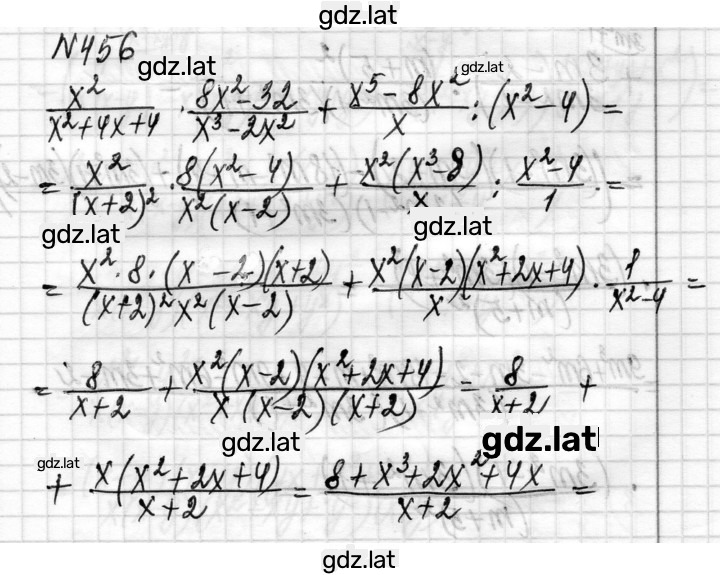 gdz.lat
№456
gdz.lat gdz.lat
x²/(x²+4x+4) · (8x²-32)/(x³-2x²) + (x⁵-8x²)/x : (x²-4) =
= x²/(x+2)² · 8(x²-4)/(x²(x-2)) + x²(x³-8)/x : (x²-4)/1 =
gdz.lat gdz.lat
= x²·8·(x-2)(x+2)/((x+2)²x²(x-2)) + x²(x-2)(x²+2x+4)/x · 1/(x²-4) =
= 8/(x+2) + x²(x-2)(x²+2x+4)/(x(x-2)(x+2)) = 8/(x+2) +
gdz.lat gdz.lat
gdz.lat
+ x(x²+2x+4)/(x+2) = (8+x³+2x²+4x)/(x+2) =
gdz.lat